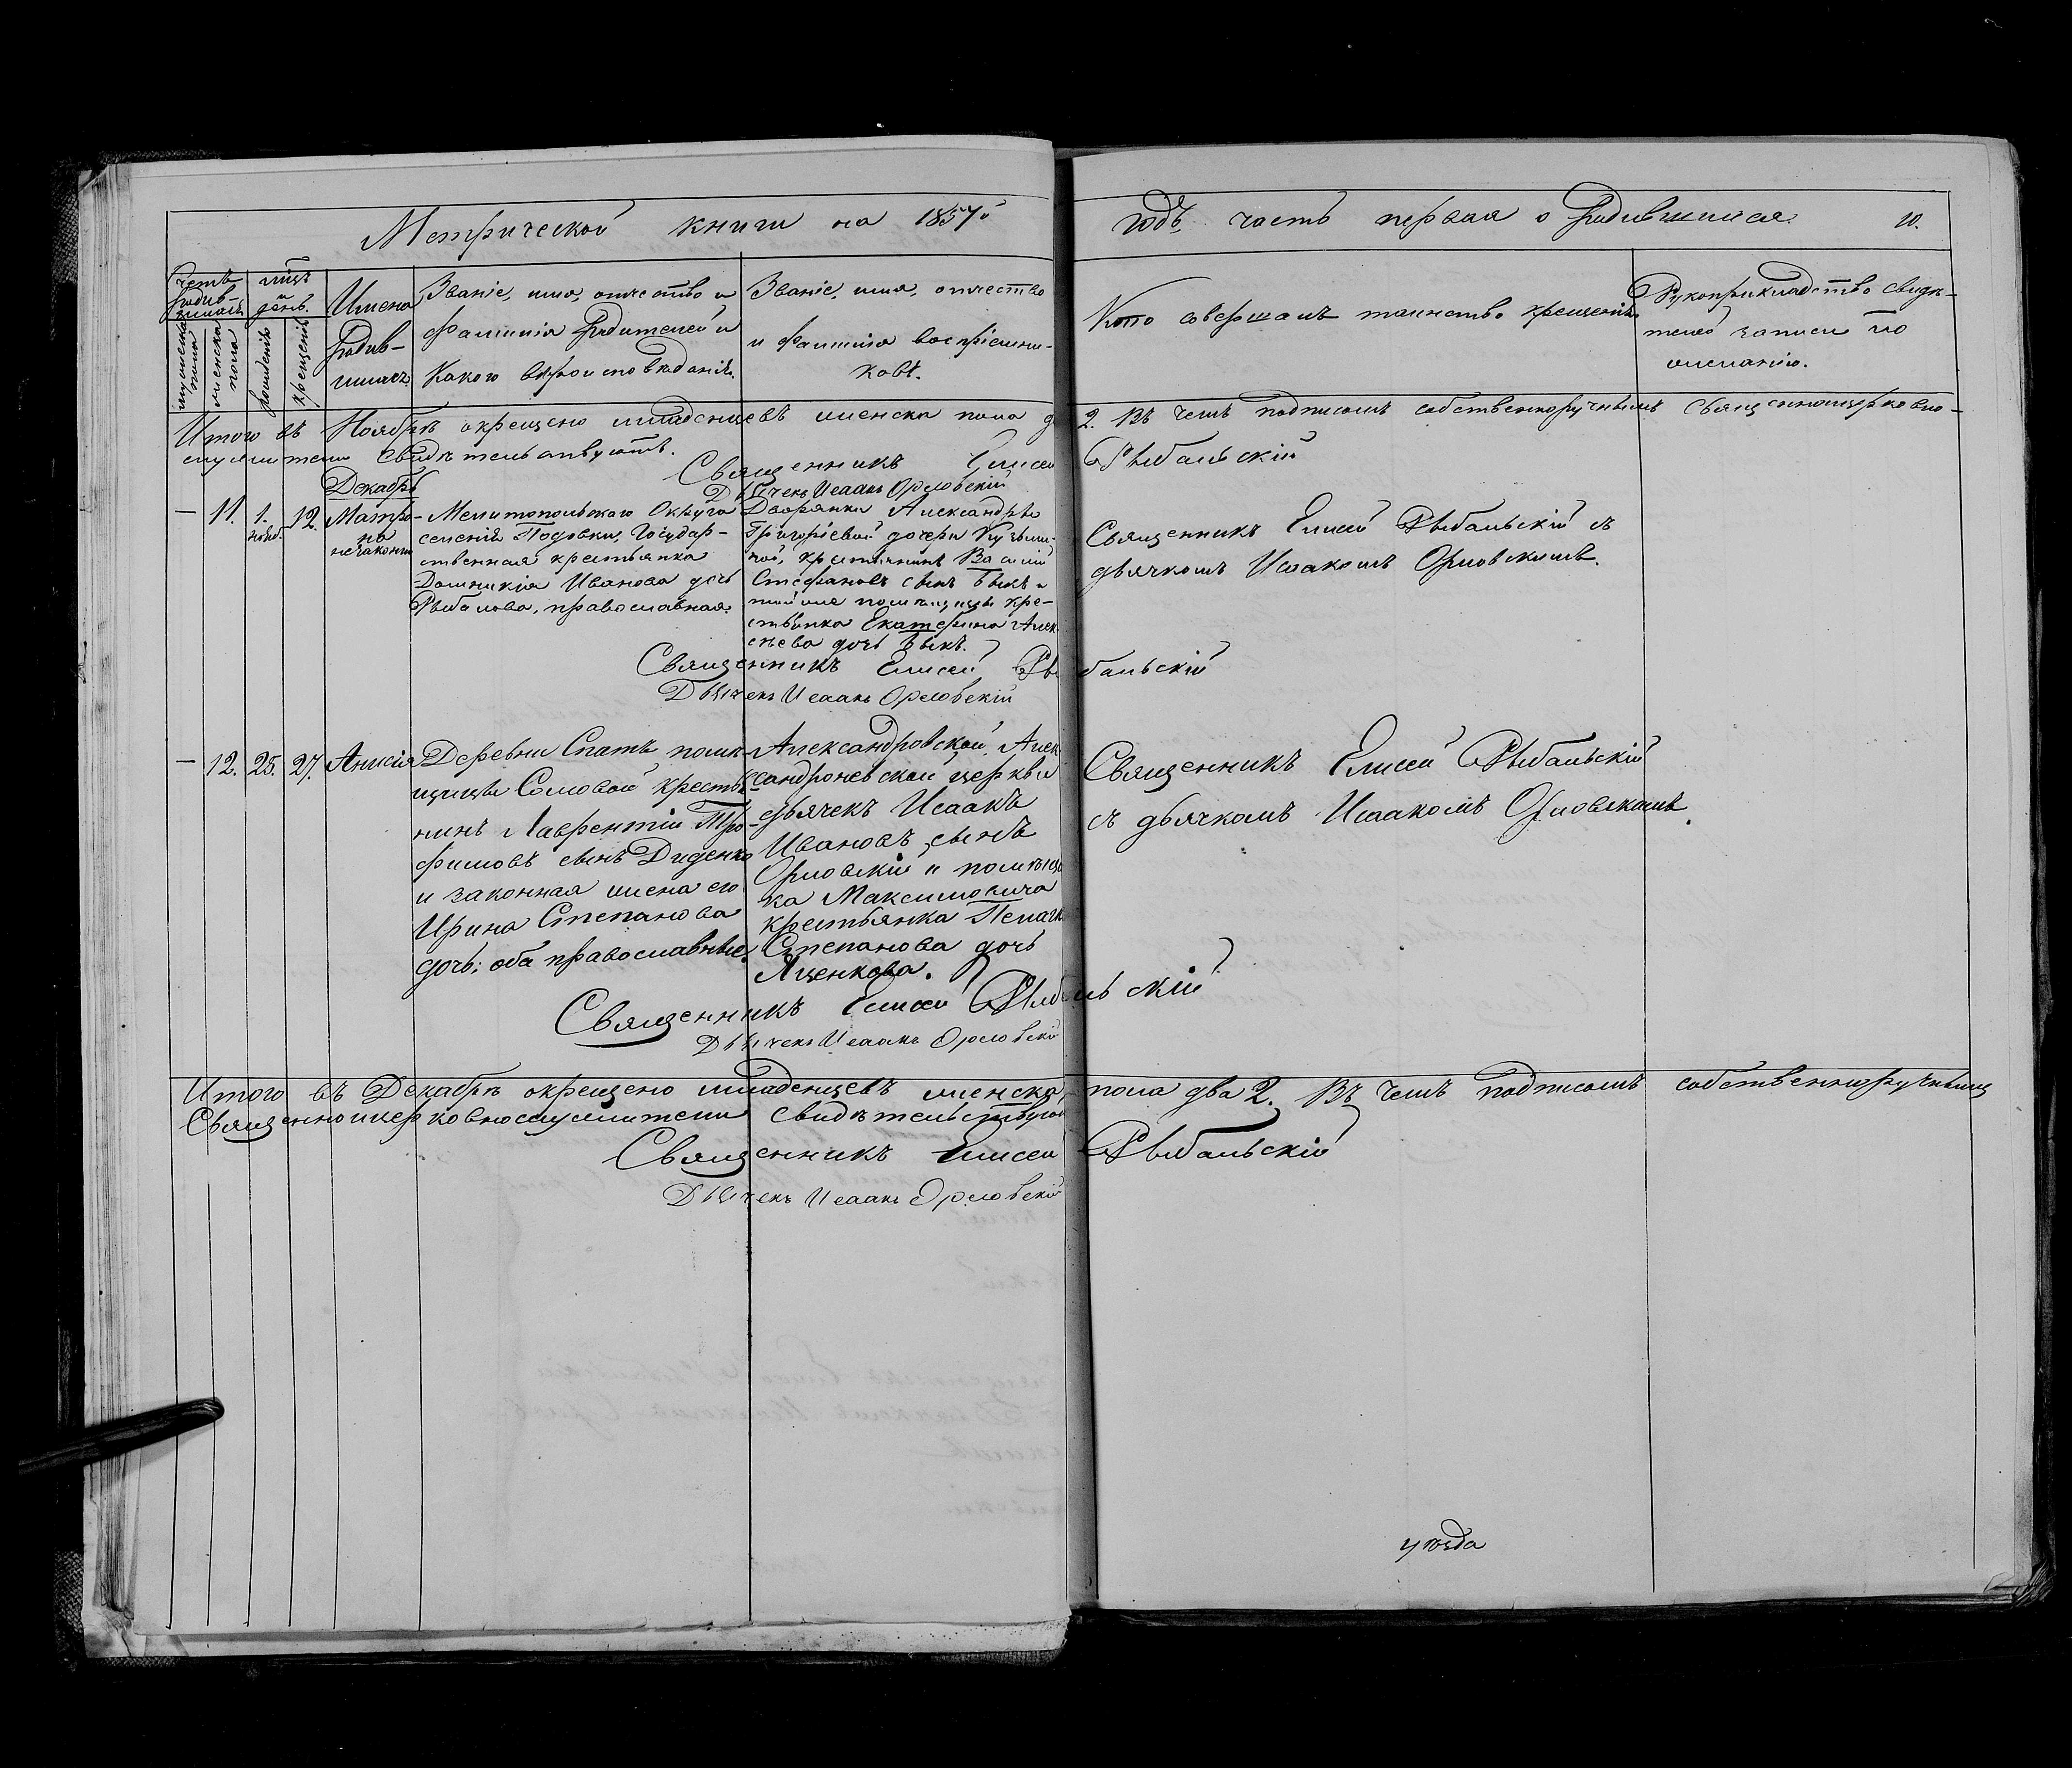 Метрической книги на 1857й
годъ часть первая о Родившихся.
10.
Счетъ Родив-
шихся
мужеска пола
женска пола
мцъ и день.
рожденія
крещенія
Имена
Родив-
шихся
Званіе, имя, отчество и
фамилія Родителей и
какого вѣроисповѣданія.
Званіе, имя, отчество
и фамилія воспріемни-
ковъ.
Кто совершалъ таинство крещенія.
Рукоприкладство свидѣ-
телей записи по
желанію.
Итого въ Ноябрѣ окрещено младенцевъ женска пола
2. Въ чемъ подписомъ собственноручнымъ Священноцерковно-
служители свидѣтельствуютъ.
Священникъ Елисей Рыбальскій
Дьячекъ Исаакъ Орловскій
Декабрь
— 11. 1. нояб. 12. Матро-
на
незаконн
Мелитопольскаго Округа
селенія Подовки, Государ-
ственная крестьянка
Домникія Иванова дочь
Рыбалова, православная.
Дворянки Александры
Григоріевой дочери
крестьянинъ Василій
Стефановъ сынъ Быкъ и
той же помѣщицы кре-
стьянка Екатерина Алек
сѣева дочь Быкъ.
Священникъ Елисей Рыбальскій съ
дьячкомъ Исаакомъ Орловскимъ.
Священникъ Елисей Рыбальскій
Дьячекъ Исаакъ Орловскій
— 12. 25. 27. Анисія
Деревни Спатъ помѣ-
щицы Сомовой крестья
нинъ Лаврентій Тро-
фимовъ сынъ Диденко
и законная жена его
Ирина Степанова
дочь; оба православные.
Александровской, Алек
сандроневской церкви
дьячекъ Исаакъ
Ивановъ сынъ
Орловскій и помѣщи
ка Максимовича
крестьянка
Степанова дочь
Яценкова.
Священникъ Елисей Рыбальскій
съ дьячкомъ Исаакомъ Орловскимъ.
Священникъ Елисей Рыбальскій
Дьячекъ Исаакъ Орловскій
Итого въ Декабрѣ окрещено младенцевъ женска пола два 2. Въ чемъ подписомъ собственноручнымъ
Священноицерковнослужители свидѣтельствуютъ
Священникъ Елисей Рыбальскій
Дьячекъ Исаакъ Орловскій
уѣзда